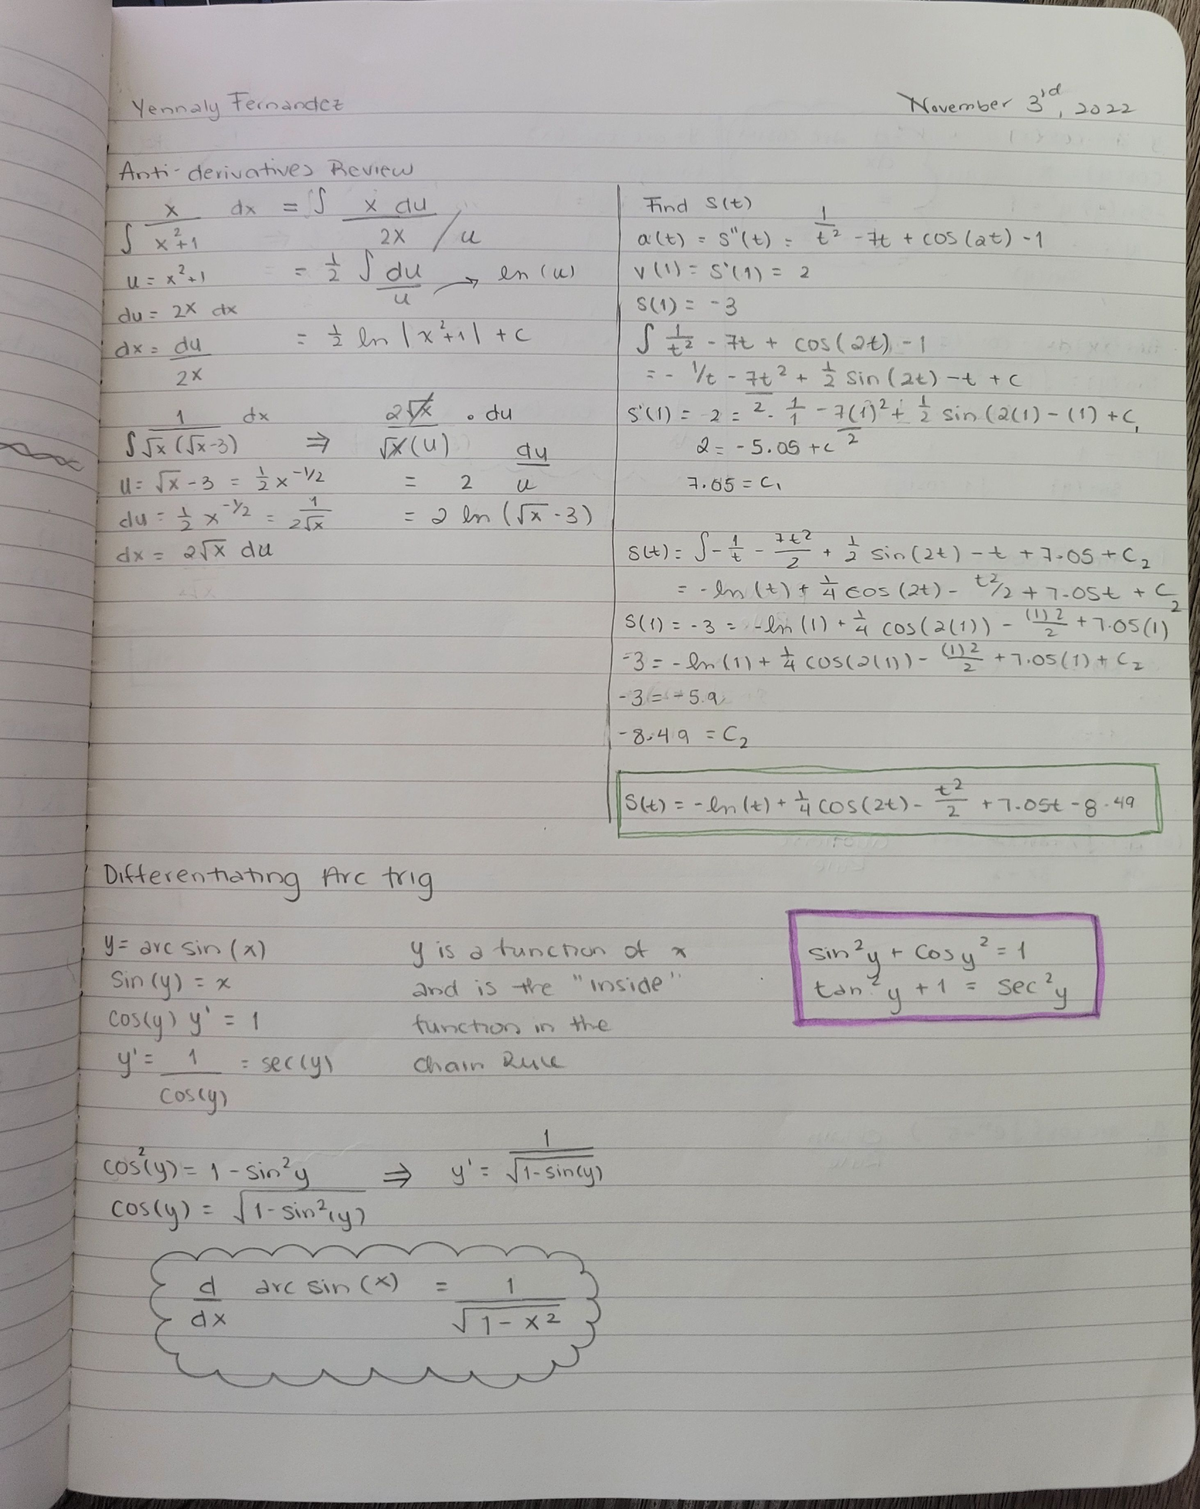 Yennaly Fernandez
November 3rd, 2022
Anti-derivatives Review
∫ x/(x²+1) dx = ∫ x du / 2x / u
u = x²+1 = ½ ∫ du/u → ln(u)
du = 2x dx
dx = du/2x = ½ ln|x²+1| + c
∫ 1/(√x(√x-3)) dx ⇒ 2√x/(√x(u)) · du
u = √x - 3 = ½x^(-1/2) = 2 du/u
du = ½ x^(-1/2) = 1/(2√x) = 2 ln(√x-3)
dx = 2√x du
Find S(t)
a(t) = S''(t) = 1/t² - 7t + cos(2t) - 1
v(1) = S'(1) = 2
S(1) = -3
∫ 1/t² - 7t + cos(2t) - 1
= - 1/t - 7t²/2 + ½ sin(2t) - t + c
S'(1) = 2 = - 1/1 - 7(1)²/2 + ½ sin(2(1) - (1) + C₁
2 = -5.05 + c
7.05 = C₁
S(t) = ∫ - 1/t - 7t²/2 + ½ sin(2t) - t + 7.05 + C₂
= -ln(t) + ¼ cos(2t) - t²/2 + 7.05t + C₂
S(1) = -3 = -ln(1) + ¼ cos(2(1)) - (1)2/2 + 7.05(1)
-3 = -ln(1) + ¼ cos(2(1)) - (1)2/2 + 7.05(1) + C₂
-3 = -5.9
-8.49 = C₂
S(t) = -ln(t) + ¼ cos(2t) - t²/2 + 7.05t - 8.49
Differentiating Arc trig
y = arc sin(x)
sin(y) = x
cos(y) y' = 1
y' = 1/cos(y) = sec(y)
y is a function of x
and is the "inside"
function in the
chain Rule
sin²y + cosy² = 1
tan²y + 1 = sec²y
cos²(y) = 1 - sin²y ⇒ y' = 1/√(1-sin(y))
cos(y) = √(1-sin²(y))
d/dx arc sin(x) = 1/√(1-x²)